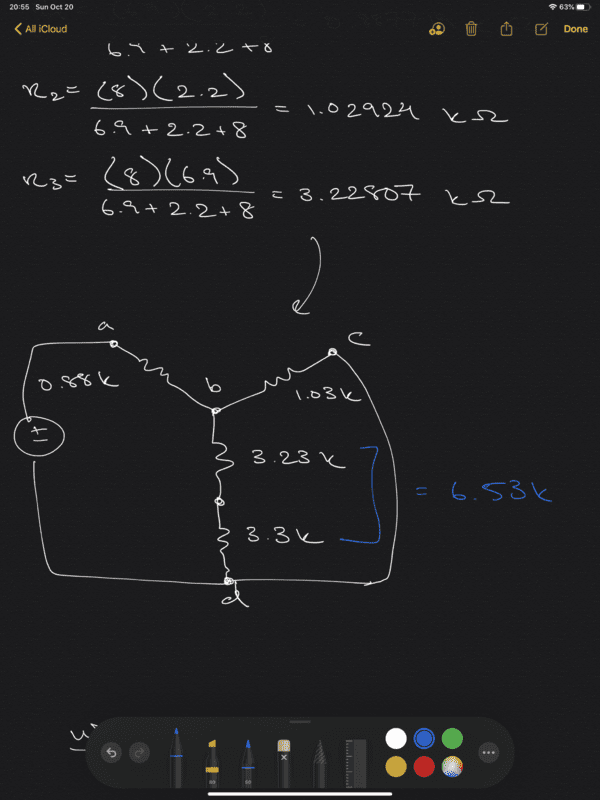 20:55 Sun Oct 20 63%
All iCloud Done
6.9 + 2.2 + 8
R2 = (8)(2.2) / 6.9 + 2.2 + 8 = 1.02924 kΩ
R3 = (8)(6.9) / 6.9 + 2.2 + 8 = 3.22807 kΩ
a
c
0.88k
b
1.03k
±
3.23k
= 6.53k
3.3k
d